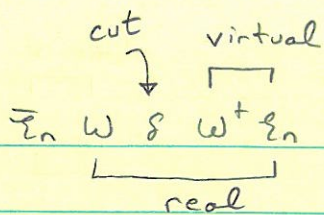 cut virtual
ξ̄n W δ W† ξn
real